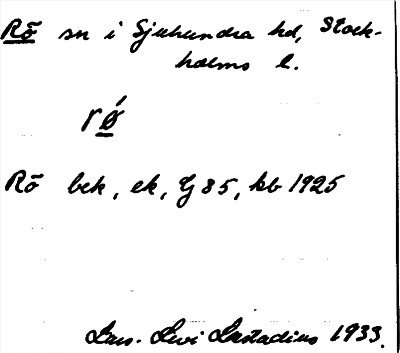 Rö sn i Sjuhundra hd, Stock-
holms l.
rǿ
Rö bek, ek, G 85, kb 1925
Lars-Levi Læstadius 1933.